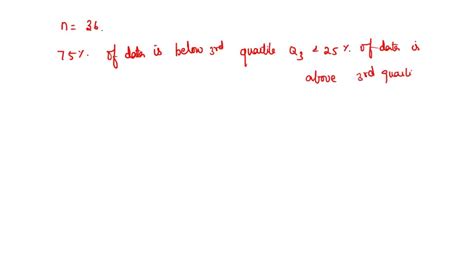 n = 36.
75% of data is below 3rd quartile Q3 & 25% of data is
above 3rd quarti